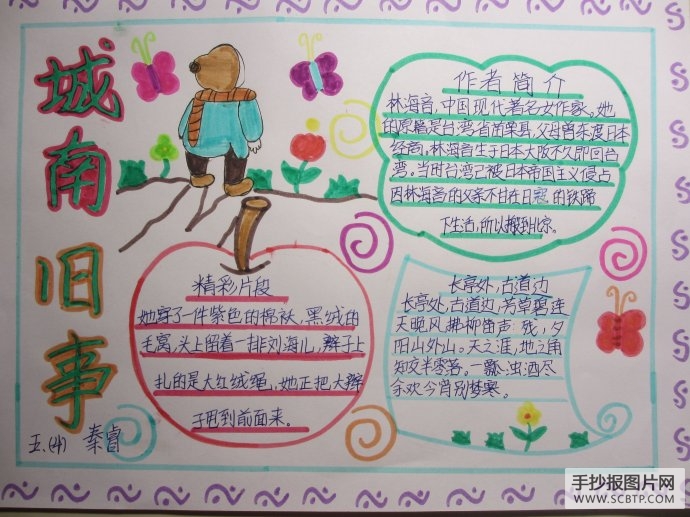 城南旧事
作者简介
林海音,中国现代著名女作家。她
的原籍是台湾省苗栗县,父母曾东渡日本
经商,林海音生于日本大阪不久即回台
湾。当时台湾已被日本帝国主义侵占
因林海音的父亲不甘在日寇的铁蹄
下生活,所以搬到北京。
精彩片段
她穿了一件紫色的棉袄,黑绒的
毛窝,头上留着一排刘海儿,辫子上
扎的是大红绒绳,她正把大辫
子甩到前面来。
长亭处,古道边
长亭处,古道边,芳草碧连
天晚风拂柳笛声残,夕
阳山外山。天之涯,地之角
知交半零落。一瓢浊酒尽
余欢今宵别梦寒。
五.(4) 秦睿
手抄报图片网
WWW.SCBTP.COM